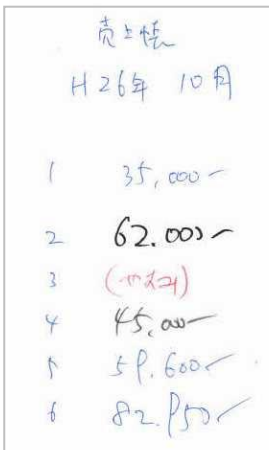 売上帳
H26年 10月
1 35,000-
2 62.000-
3
4 45,000-
5 59.600-
6 82.950-